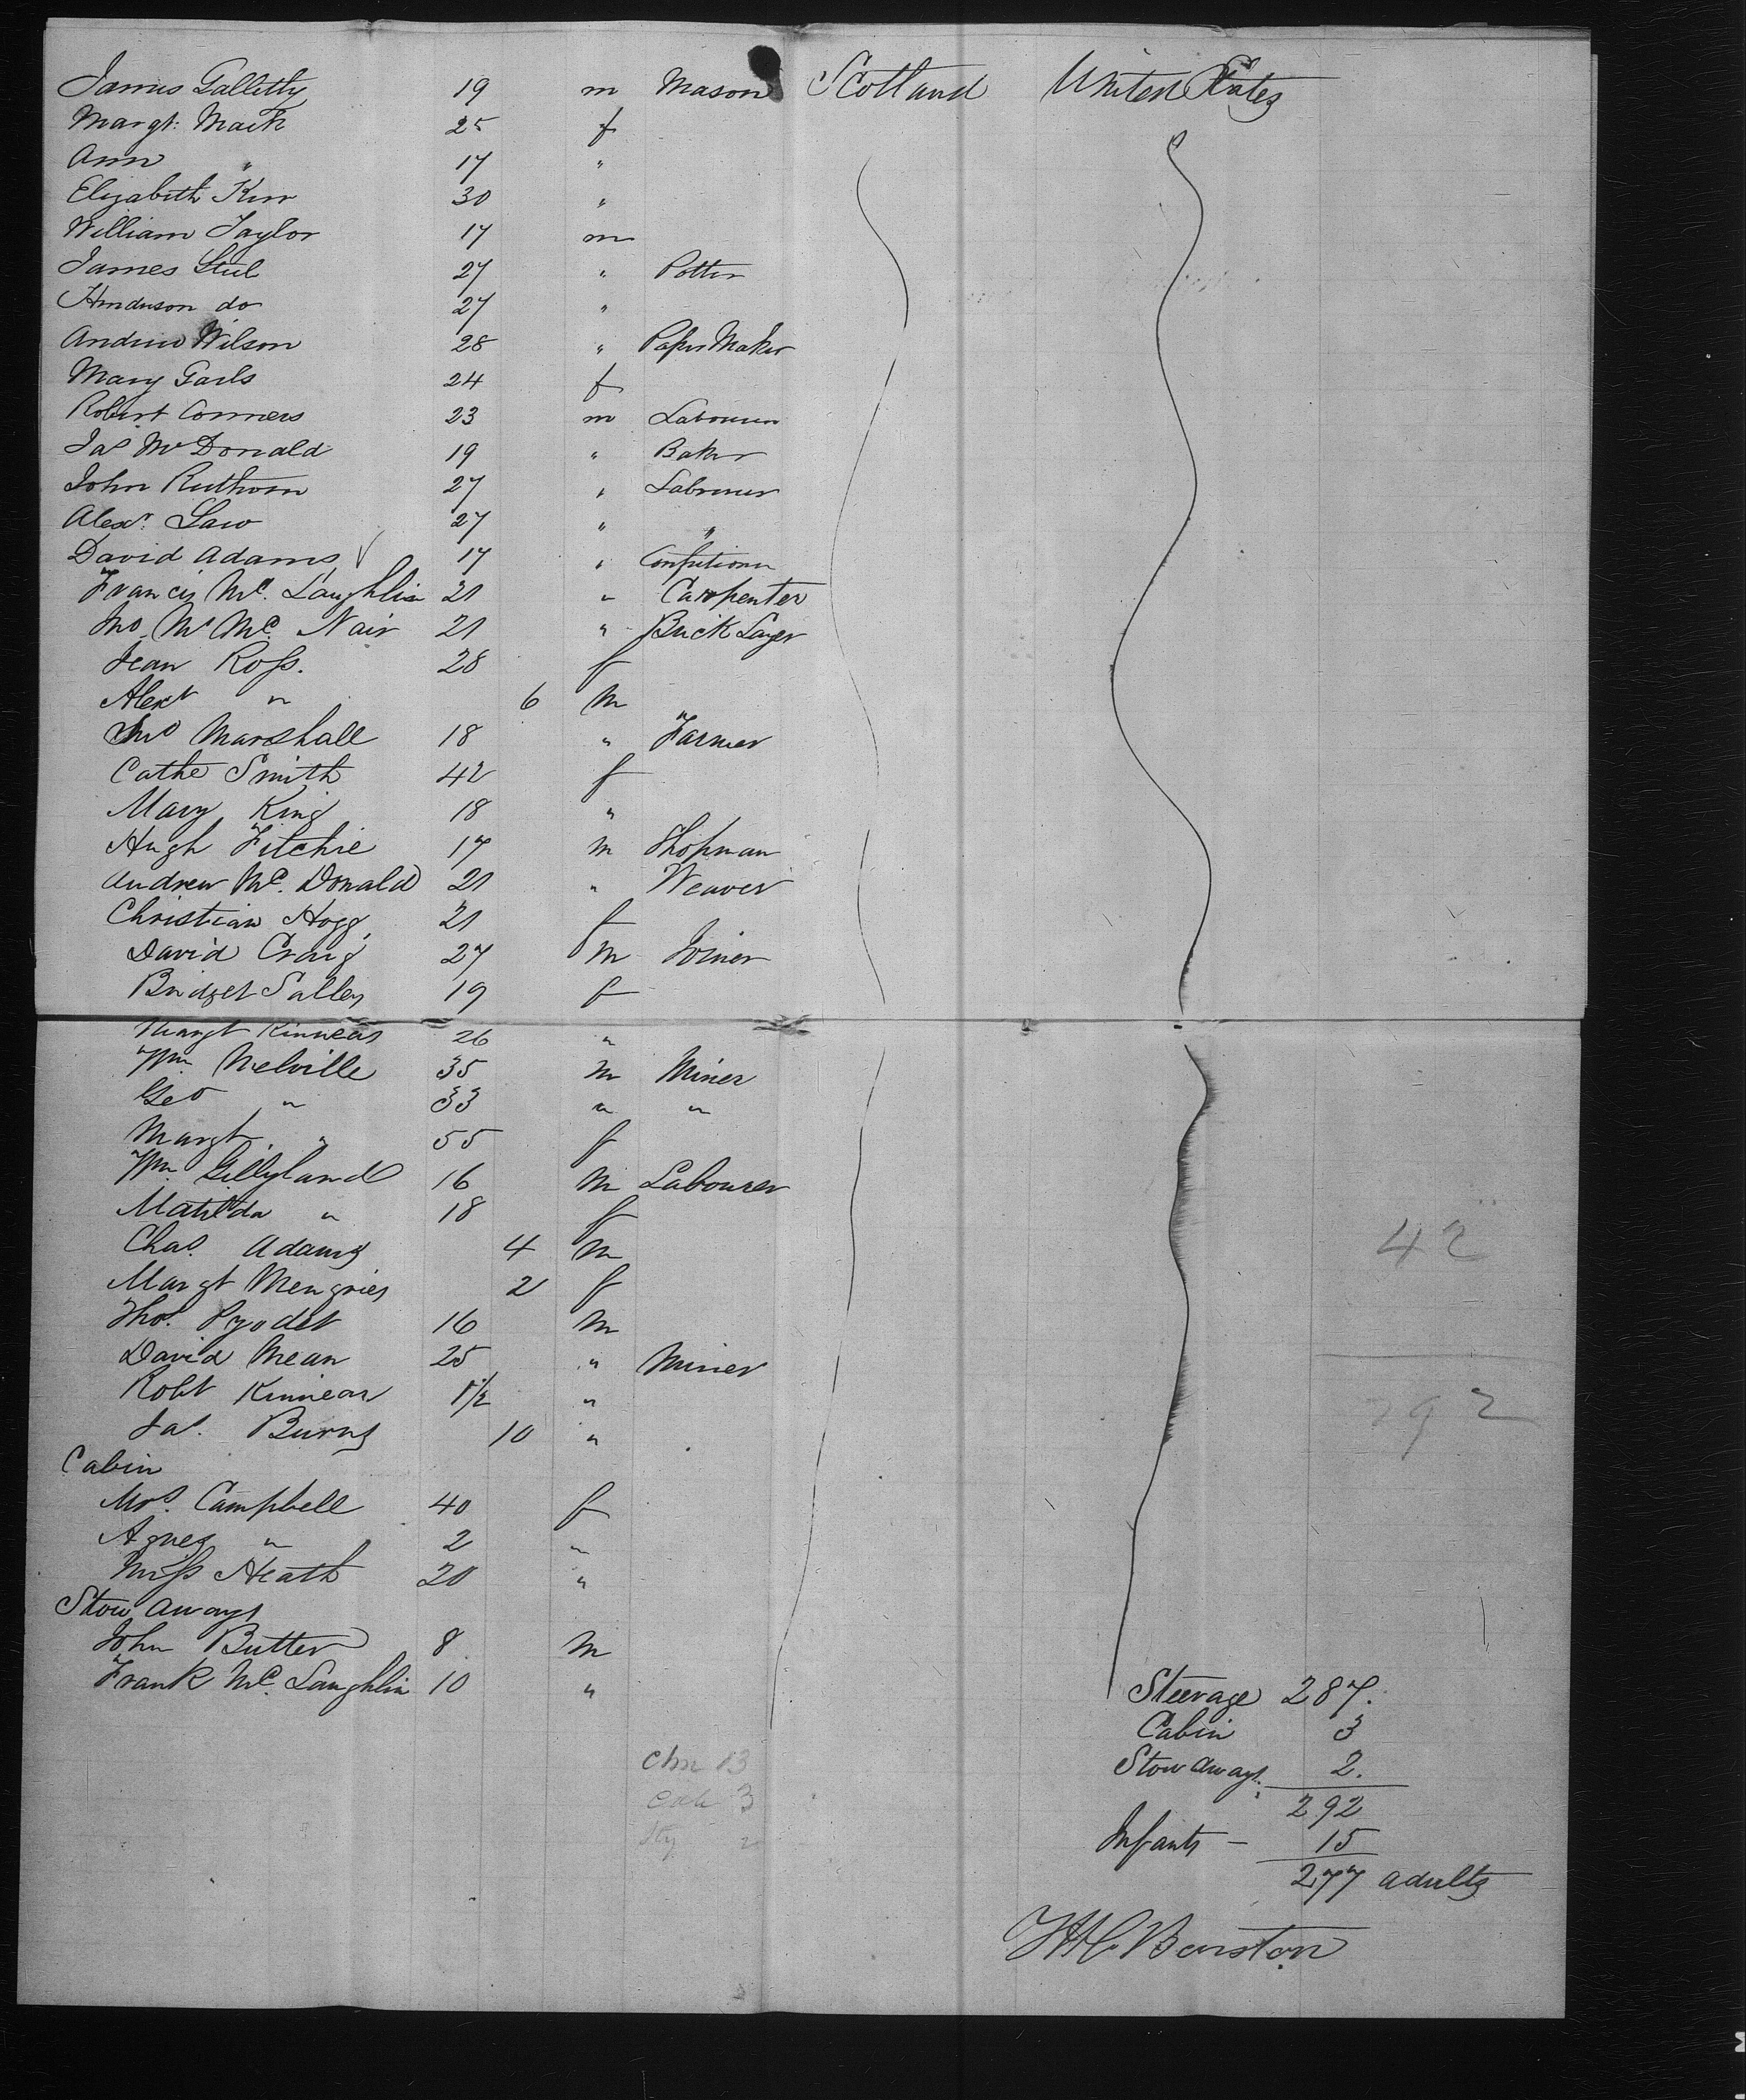 James Gallitly 19 m Mason Scotland United States
Margt: Mack 25 f
Ann " 17 "
Elizabeth Kerr 30 "
William Taylor 17 m
James Steel 27 " Potter
Henderson do 27 "
Andrew Wilson 28 " Paper Maker
Mary Garls 24 f
Robert Conners 23 m Labourer
Jas Mc Donald 19 " Baker
John Ruthven 27 " Labourer
Alexr. Law 27 " "
David Adams √ 17 " Confectioner
Francis Mc. Laughlin 21 " Carpenter
Jno. Mc. Nair 21 " Brick Layer
Jean Ross. 28 f
Alexr " 6 m
Jno Marshall 18 " Farmer
Cathe Smith 42 f
Mary King 18 "
Hugh Fitchie 17 m Shopman
Andrew Mc. Donald 21 " Weaver
Christian Hogg 21 f
David Craig 27 m Joiner
Bridget Salley 19 f
Margt Kinnear 26 "
Wm. Melville 35 m Miner
Geo " 33 " "
Margt " 55 f
Wm. Gillyland 16 m Labourer
Matilda " 18 f
Chas. Adams 4 m
42
Margt Menzries 2 f
Thos. 16 m
David Mean 25 " Miner
Robt Kinnear 1½ "
292
Jas. Burns 10 "
Cabin
Mrs. Campbell 40 f
Agnes " 2 "
Miss Heath 20 "
Stow aways
John Butter 8 m
Frank Mc. Laughlin 10 "
Steerage 287.
Cabin 3
Stow aways. 2.
292
Infants — 15
277 adults
Chn 13
Cab 3
2